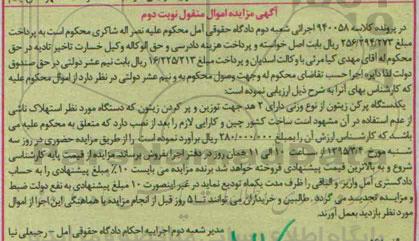 آگهی مزایده اموال منقول نوبت دوم
در پرونده کلاسه ۹۴۰۰۵۸ اجرائی شعبه دوم دادگاه حقوقی آمل محکوم علیه نصراله شاکری محکوم است به پرداخت
مبلغ ۲۵۶/۲۹۴/۲۷۳ ریال بابت اصل خواسته و پرداخت هزینه دادرسی و حق الوکاله وکیل خسارت تاخیر تادیه در حق
محکوم له آقای مهدی کیا مرئی با وکالت اسدیان و پرداخت مبلغ ۱۶/۲۲۵/۲۱۳ ریال بابت نیم عشر دولتی در حق صندوق
دولت لذا دایره اجرا حسب تقاضای محکوم له وجهت وصول محکوم به و نیم عشر دولتی در نظر دارد از اموال محکوم علیه
که کارشناس بهای آنرا به شرح ذیل ارزیابی نموده است:
یکدستگاه پرکن زیتون از نوع وزنی دارای ۲ هد جهت توزین و پر کردن زیتون که دستگاه مورد نظر استهلاک ناشی
از عدم استفاده در آن مشهود است ساخت کشور چین و کارایی لازم را بعد از نصب دارد که متعلق به محکوم علیه می
باشد که کارشناس ارزش آن را بمبلغ ۲۸۰/۰۰۰/۰۰۰ ریال برآورد نموده است را از طریق مزایده حضوری در روز سه
شنبه مورخ ۱۳۹۵/۳/۴ از ساعت ۱۰ الی ۱۱ همان روز در دفتر اجرا بفروش برساند. مزایده از قیمت پایه کارشناسی
شروع و به بالاترین قیمت پیشنهادی فروخته خواهد شد برنده مزایده می بایست ۱۰٪ مبلغ پیشنهادی را به حساب
دادگستری آمل واریز و الباقی را ظرف مدت یکماه تودیع نماید در غیر اینصورت ۱۰ مبلغ پیشنهادی به نفع دولت ضبط
و مزایده تجدید می گردد . طالبین و خریداران می توانند تا ۵ روز قبل از انجام مزایده با هماهنگی این اجرا از اموال
مورد نظر بازدید بعمل آورند.
مدیر شعبه دوم اجراییه احکام دادگاه حقوقی آمل - رجبعلی نیا